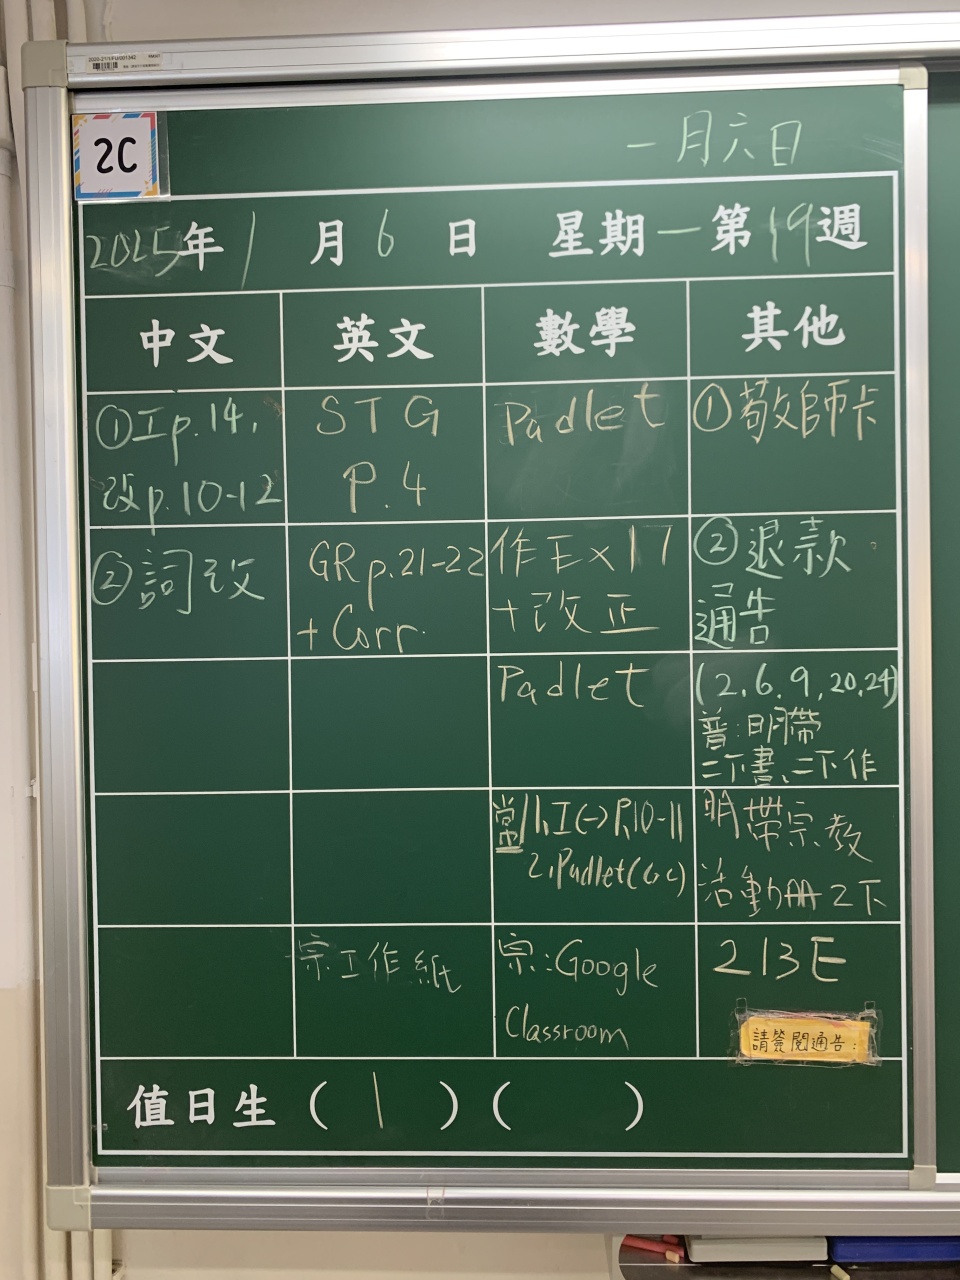 2C
一月六日
2025年1月6日 星期一第19週
中文 英文 數學 其他
①工p.14,
改p.10-12
STG
P.4
Padlet
①敬師卡
②詞改
GR p.21-22
+ Corr.
作Ex17
+改正
②退款
通告
Padlet
(2,6,9,20,24)
普:明帶
二下書、二下作
常 1.工(一)P.10-11
2.Padlet(GC)
明帶宗教
活動AA2下
宗工作紙
宗:Google
Classroom
213E
請簽閱通告:
值日生 ( 1 ) ( )